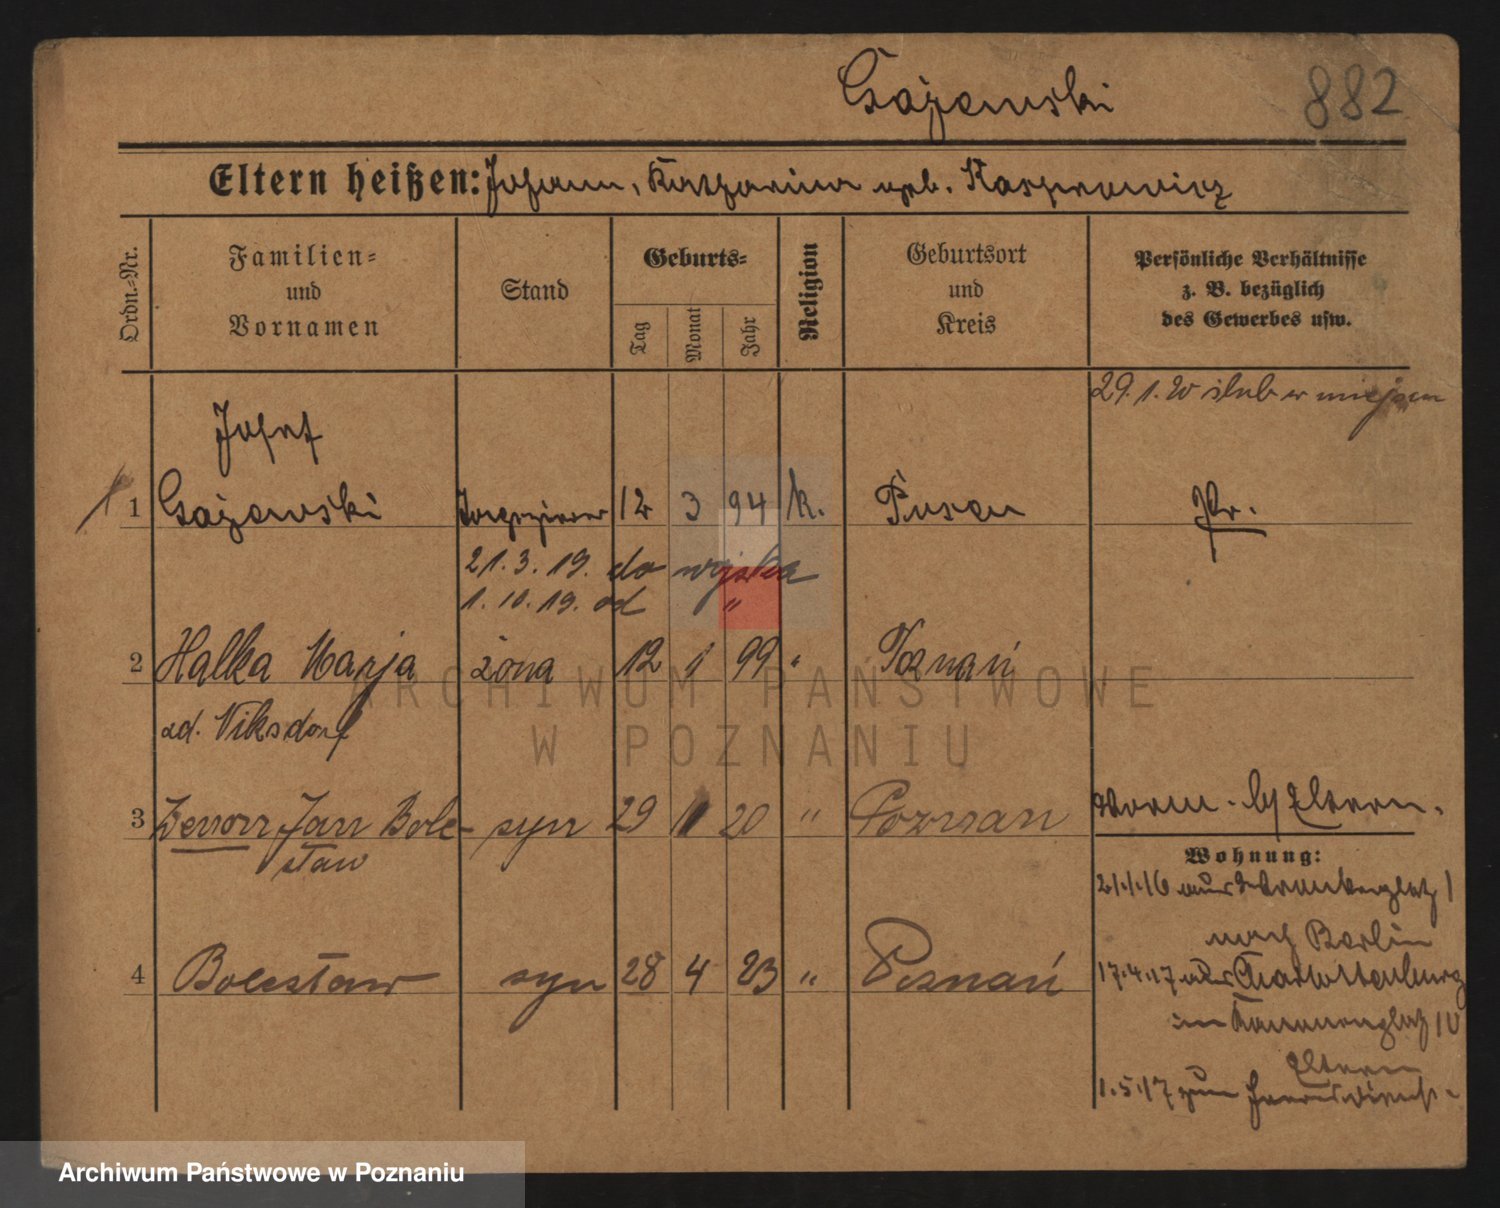 Gażewski 882
Eltern heißen: Johann, Katharina geb. Kasprowicz
Ordn.-Nr.
Familien-
und
Vornamen
Stand
Geburts-
Tag
Monat
Jahr
Religion
Geburtsort
und
Kreis
Persönliche Verhältnisse
z. B. bezüglich
des Gewerbes usw.
29. 1. 20 ślub w miejscu
Josef
1 Gażewski Tapezierer 12 3 94 k. Posen Pr.
21. 3. 19. do wojska
1. 10. 19. od "
2 Halka Marja żona 12 1 99 " Poznań
zd. Niksdorf
3 Zenon Jan Bole- syn 29 11 20 " Poznań
sław
vorm. b/ Eltern.
Wohnung:
21.1.16 aus 1
nach Berlin
4 Bolesław syn 28 4 23 " Poznań
17.4.17 aus Charlottenburg
in Kanonenplatz 10
Eltern
1.5.17 zum Heeresdienst.
ARCHIWUM PAŃSTWOWE
W POZNANIU
Archiwum Państwowe w Poznaniu